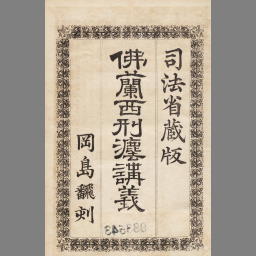 司法省蔵版
佛蘭西刑律講義
岡島飜刻